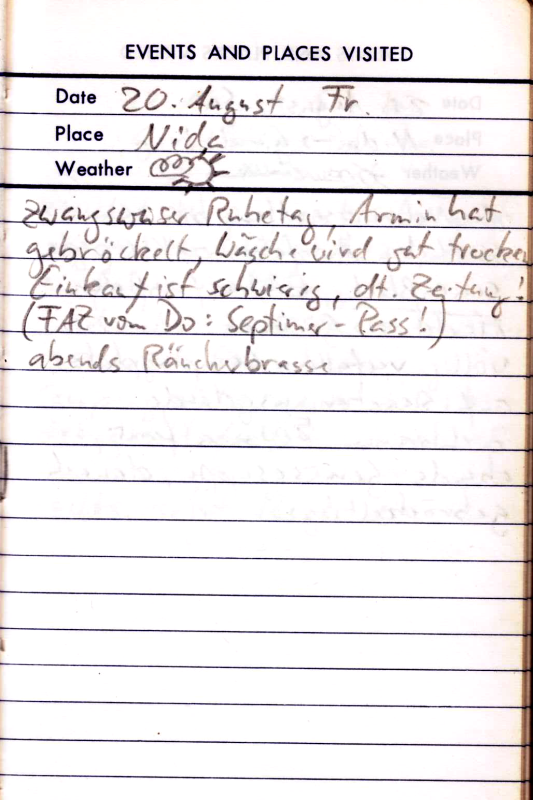 EVENTS AND PLACES VISITED
Date 20. August Fr.
Place Nida
Weather
zwangsweiser Ruhetag, Armin hat
gebröckelt, Wäsche wird gut trocken
Einkauf ist schwierig, dt. Zeitung!
(FAZ vom Do: Septimer-Pass!)
abends Räucherbrasse